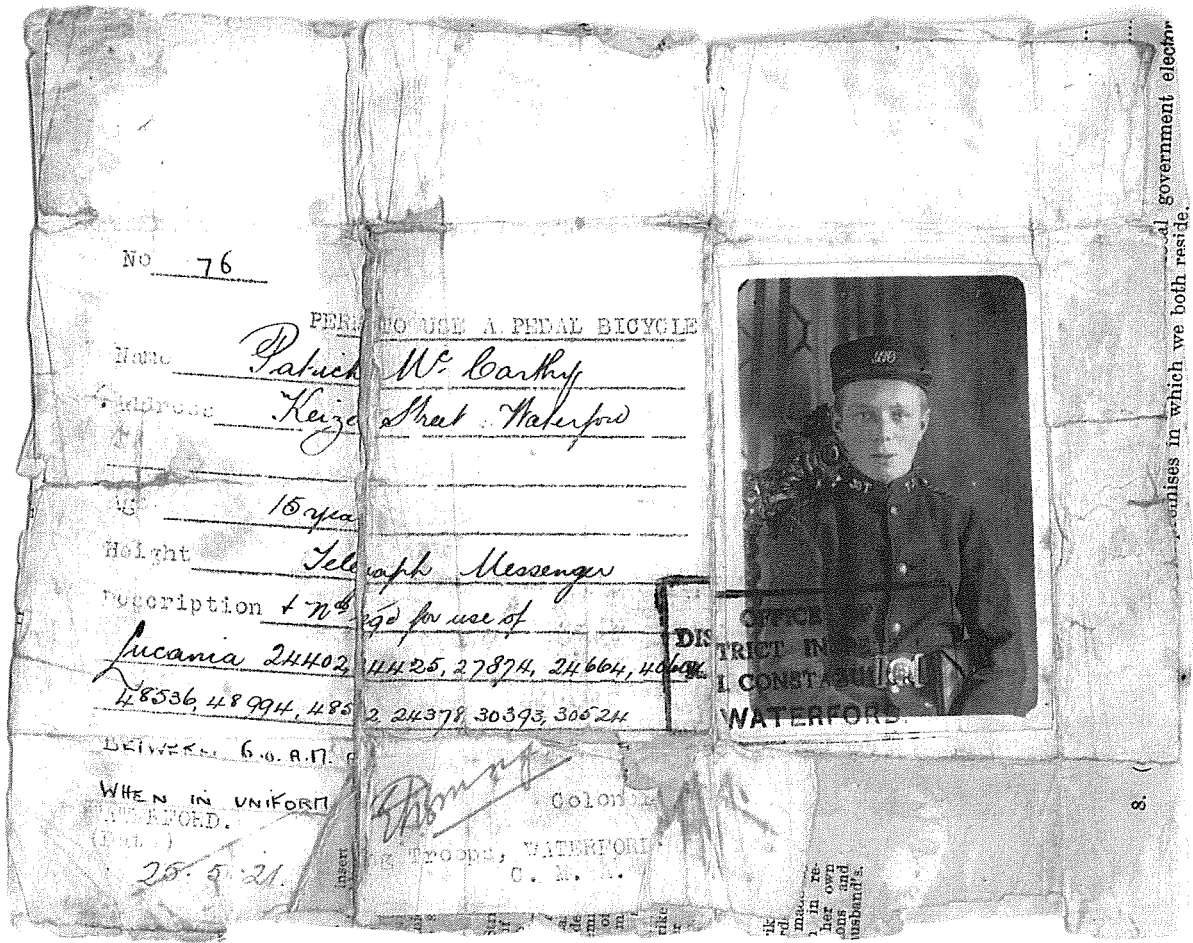 No 76
PER TO USE A PEDAL BICYCLE
Name Patrick Mc Carthy
Address Keize Street Waterford
15 yea
Height Telegraph Messenger
Description + Nos egd for use of
Lucania 24402, 4425, 27874, 24664,
48536, 48994, 485 2, 24378, 30393, 30524
BETWEEN 6.0. A.M.
WHEN IN UNIFORM
WATERFORD.
Colon
ng Troops, WATERFORD
C. M. A.
25.5.21.
OFFICE
DISTRICT IN
CONSTABULARY
WATERFORD
government elector
omises in which we both reside.
8. (
insert
in re-
her own
ons and
usband's.